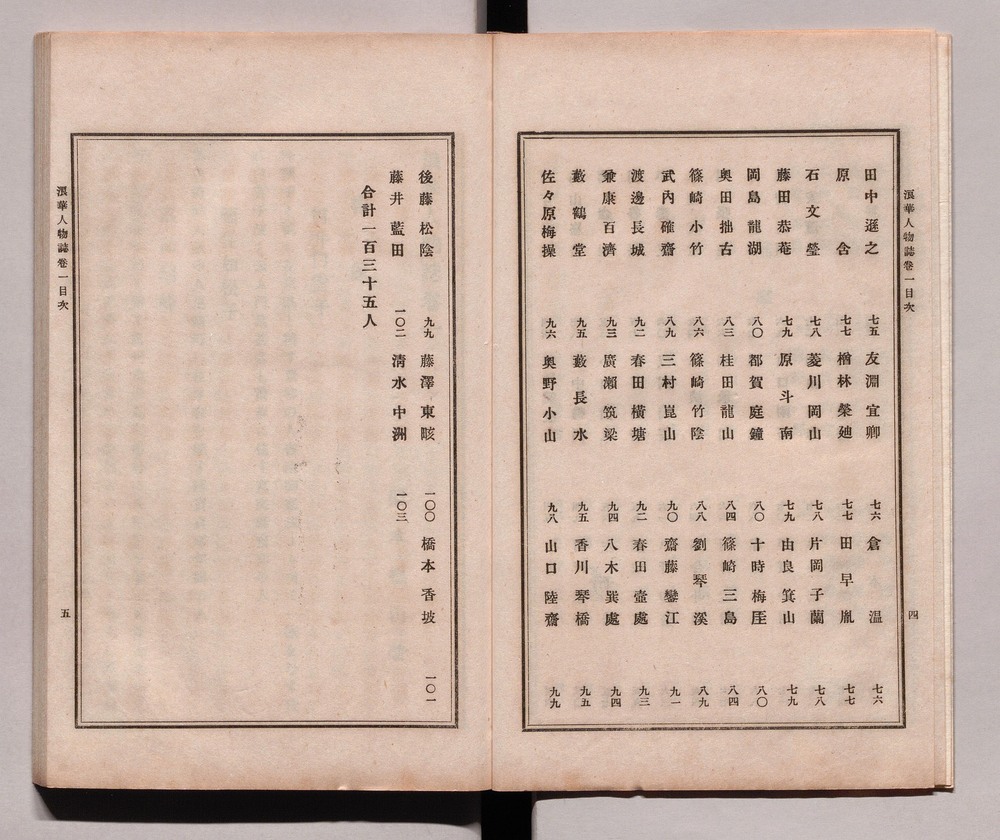 浪華人物誌卷一目次
四
田中遯之 七五 友淵宜卿 七六 倉温 七六
原舍 七七 楢林榮廸 七七 田早胤 七七
石文瑩 七八 菱川岡山 七八 片岡子蘭 七八
藤田恭菴 七九 原斗南 七九 由良箕山 七九
岡島龍湖 八〇 都賀庭鐘 八〇 十時梅厓 八〇
奥田拙古 八三 桂田龍山 八四 篠崎三島 八四
篠崎小竹 八六 篠崎竹陰 八八 劉琴溪 八九
武内確齋 八九 三村崑山 九〇 齋藤鑾江 九一
渡邊長城 九二 春田橫塘 九二 春田壺處 九三
兼康百濟 九三 廣瀨筑梁 九四 八木巽處 九四
藪鶴堂 九五 藪長水 九五 香川琴橋 九五
佐々原梅操 九六 奥野小山 九八 山口陸齋 九九
後藤松陰 九九 藤澤東畡 一〇〇 橋本香坡 一〇一
藤井藍田 一〇二 清水中洲 一〇三
合計一百三十五人
浪華人物誌卷一目次
五